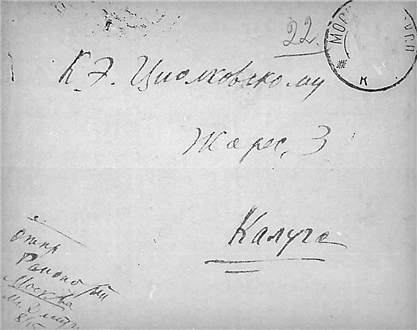 22.
МОС
К
К. Э. Циолковскому
Жорес, 3
Калуга
Отпр
Москва